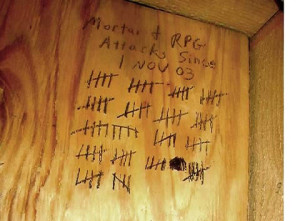 Mortar & RPG
Attacks Since
1 NOV 03